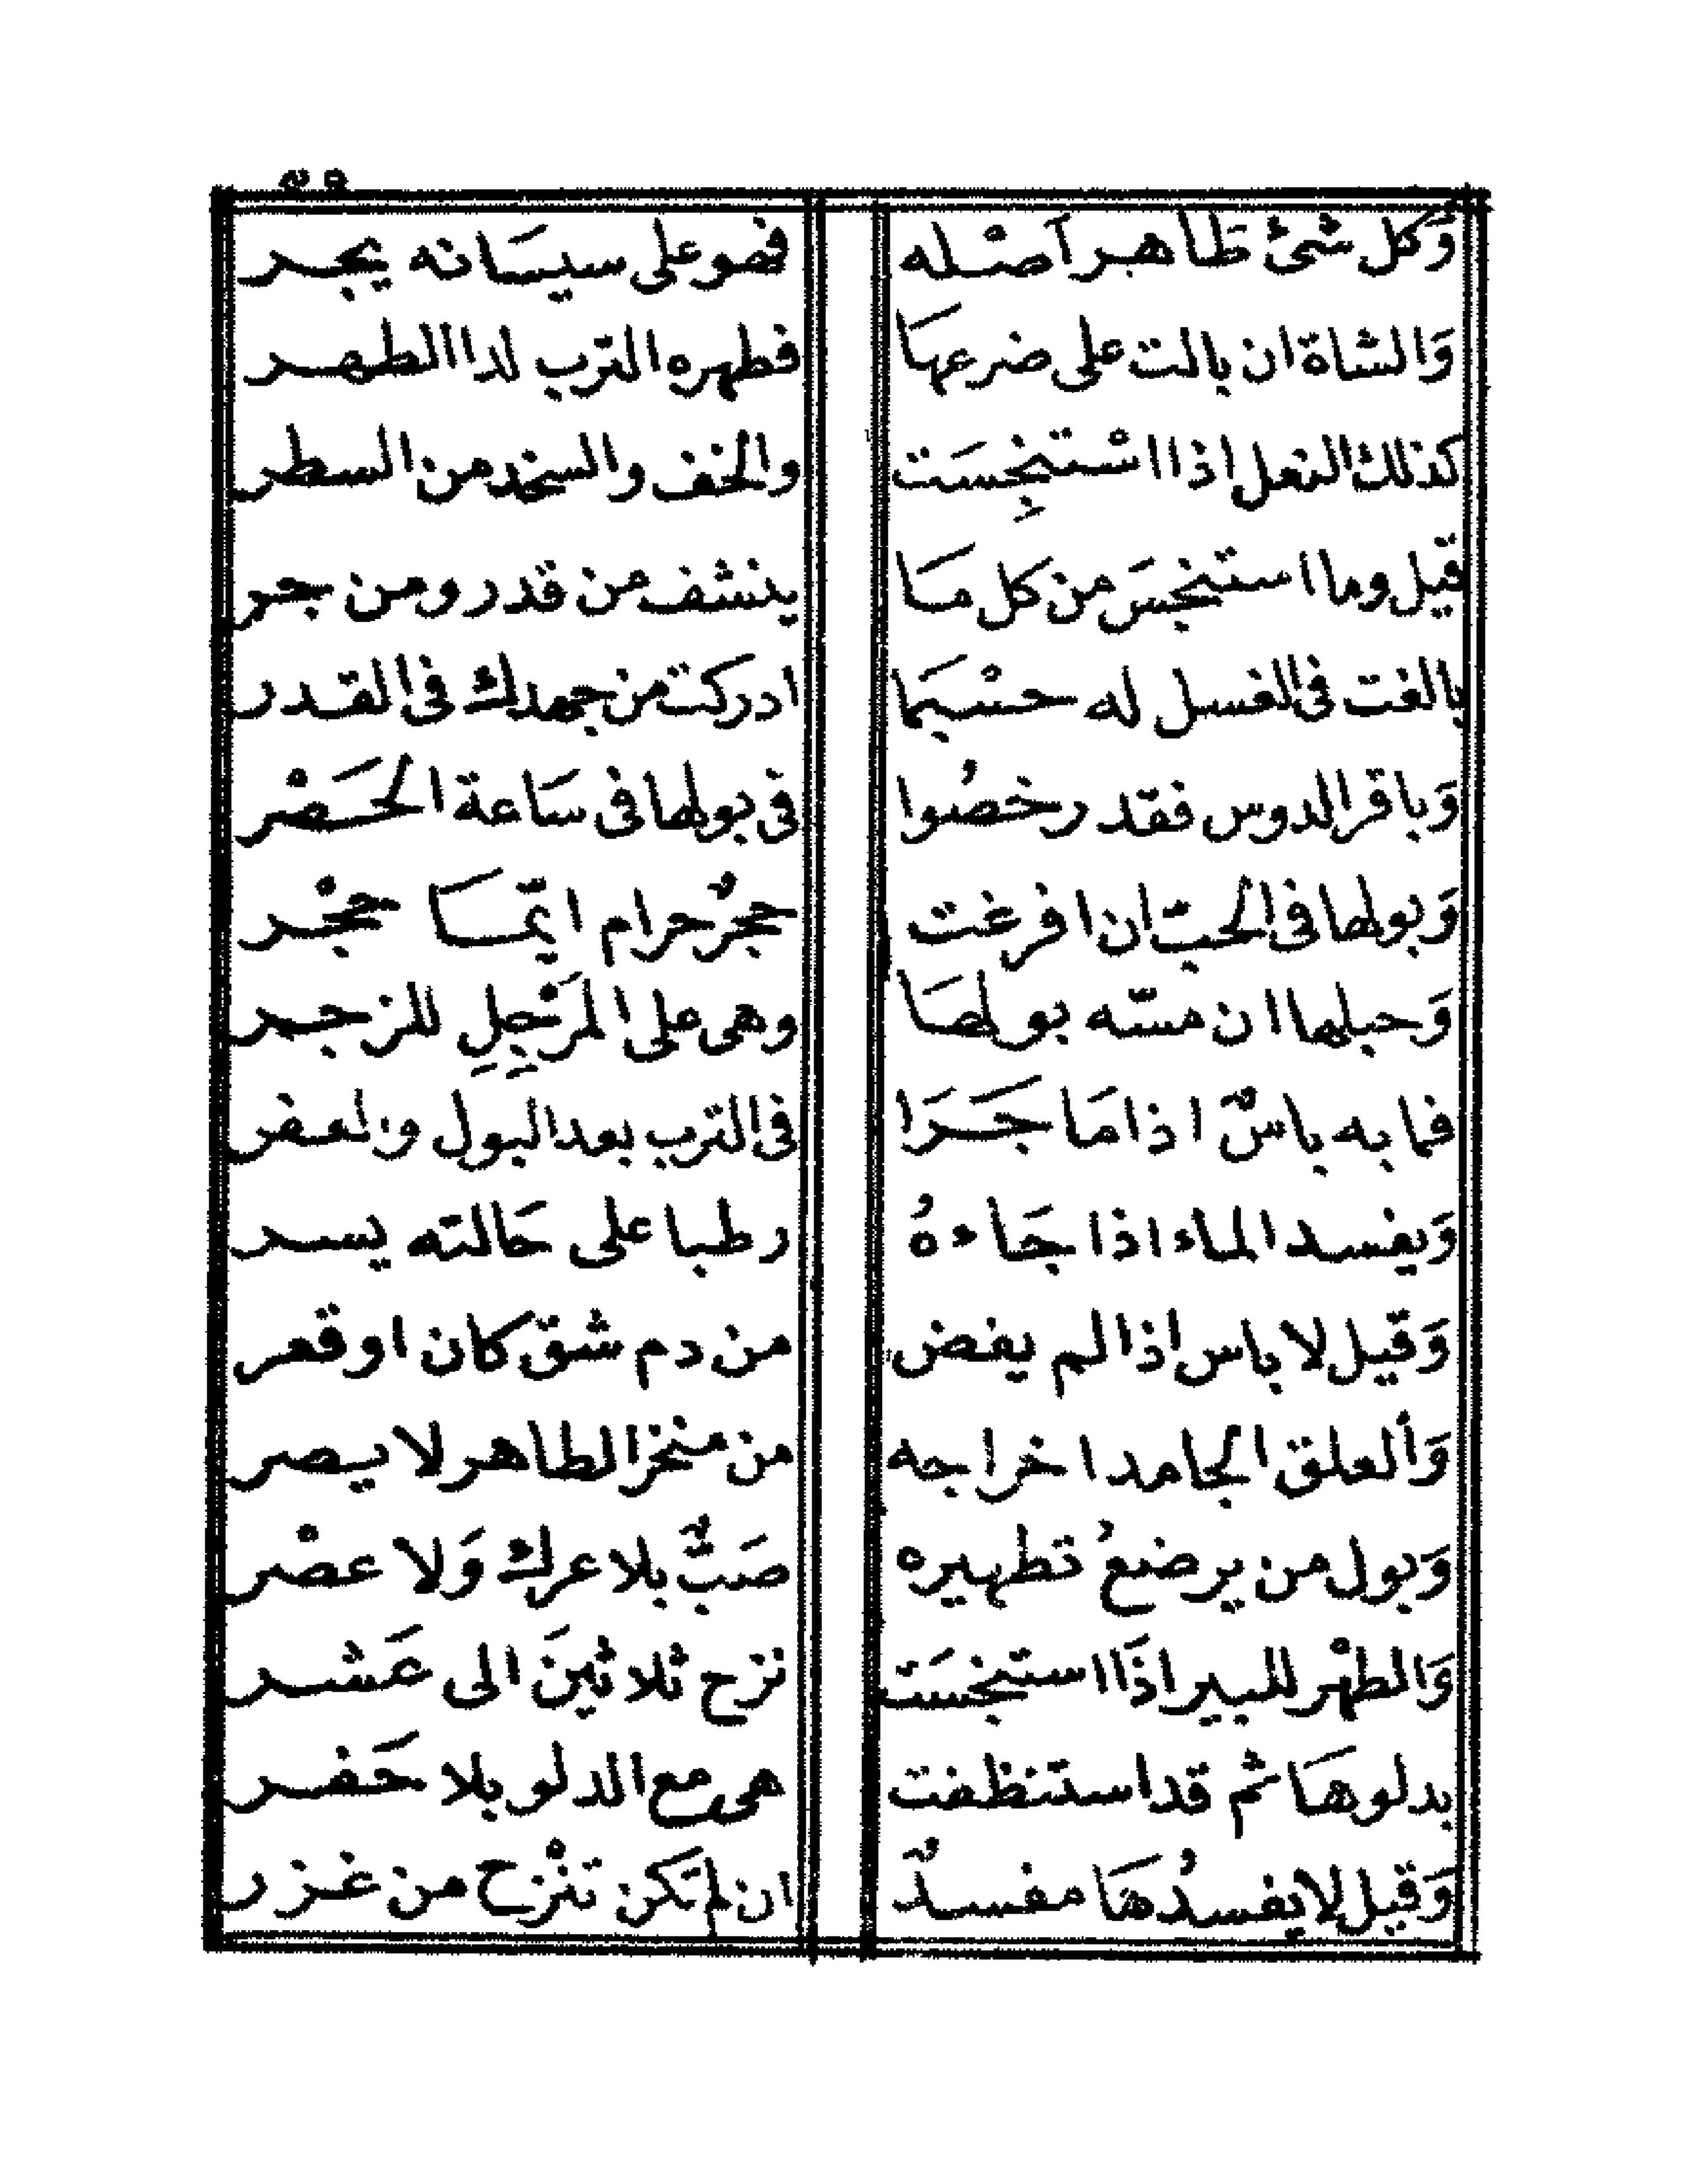 وَكل شئ طاهر اصْله فهو على سيسَانه يجر
وَالشاة ان بالت على ضرعهَا فطهره الترب لدا الطهر
كذلك النعل اذا اسْتنجِسَت والخف والسنخد من السطر
قيل وما استنجسَ من كل مَا ينشف من قدر ومن جر
بالغت فى الغسل له حسْبَما ادركت من جهدك فى القدر
وَباقر الدوس فقد رخصُوا فى بولها فى سَاعة الحَصْر
وَبولها فى الحبّ ان افرغت حجرٌ حرام ايّمَا حجْر
وَحبلها ان مسّه بولهَا وهى على المَرْجِلِ للزجر
فما به باسٌ اذا مَا جَرَا فى الترب بعد البول والعفر
وَيفسد الماء اذا جَاءهُ رطبا على حَالته يسر
وَقيل لا باس اذا لم يفض من دم شق كان او قعر
وَالعلق الجامد اخراجه من منخر الطاهر لا يصر
وَبول من يرضعُ تطهيره صَبٌّ بلا عرك وَلا عصْر
وَالطهْر للبير اذَا استنجسَت نزح ثلاثينَ الى عَشر
بدلوهَا ثم قد استنظفت هى مع الدلو بلا حَفر
وَقيل لا يفسدُهَا مفسدٌ ان لم تكن تنْزح من غزر